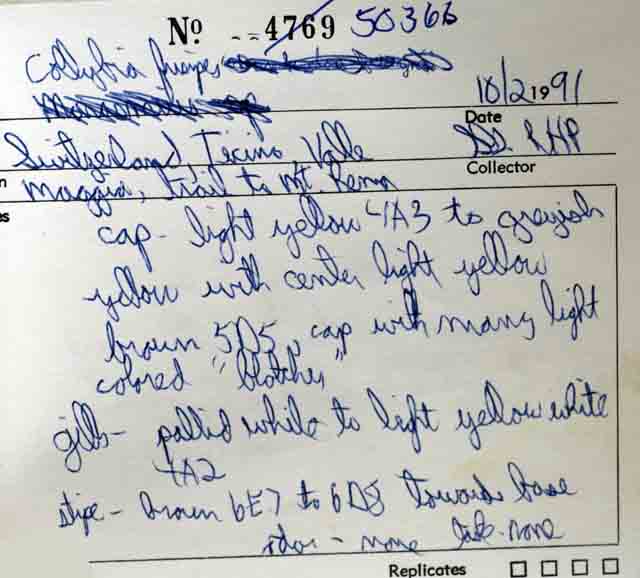 No --4769 50366
Collybia fusipes
10/2 1991
Date
Switzerland, Ticino, Valle
DS. RHP
n
Collector
Maggia, trail to Mt.
es
cap - light yellow 4A3 to greyish
yellow with center light yellow
brown 5D5, cap with many light
colored "blotches"
gills - pallid while to light yellow white
4A2
stipe - brown 6E7 to 6D8 towards base
odor - none taste-none
Replicates